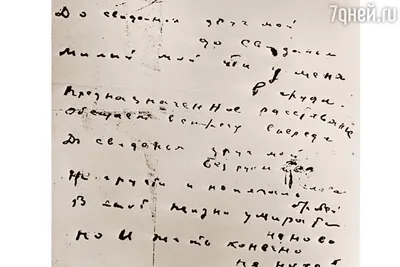 7дней.ru
До свиданья друг мой
до свиданья
Милый мой ты у меня
в груди.
Предназначенное расставанье
Обещает встречу впереди
До свиданья друг мой
без руки слова
Не грусти и не печаль
бровей
В этой жизни умирать
не ново
но и жить конечно
не новей